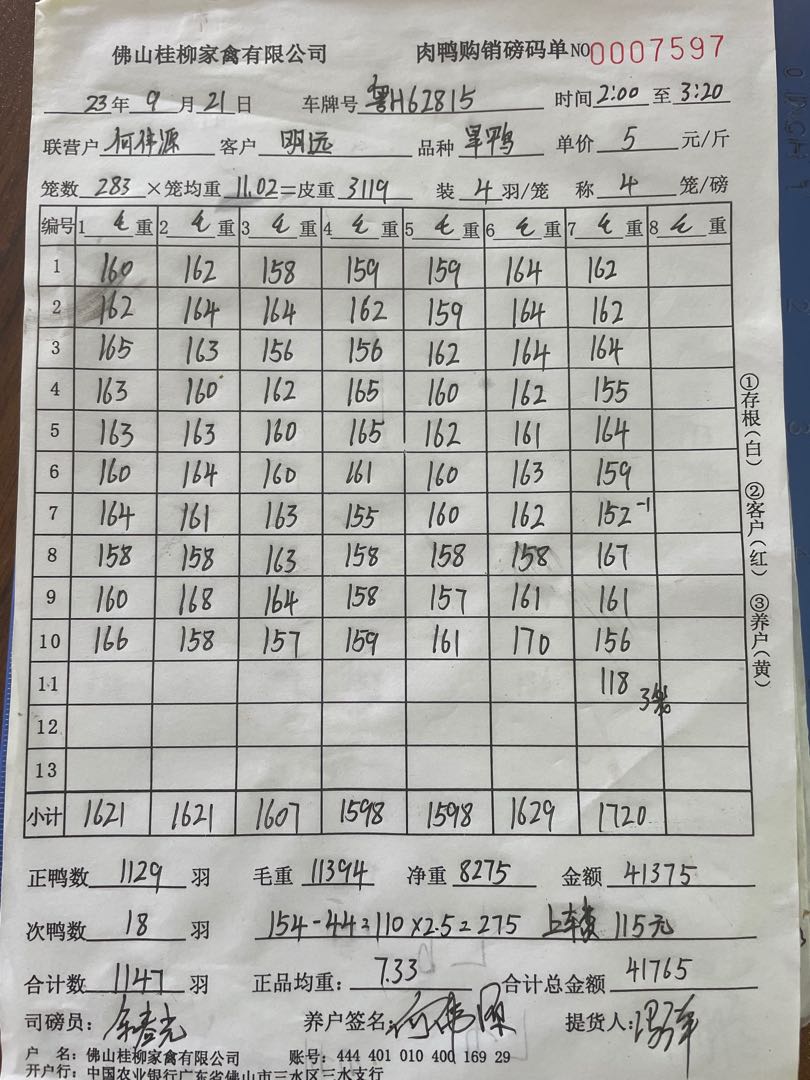 佛山桂柳家禽有限公司 肉鸭购销磅码单 NO 0007597
23年 9月 21日 车牌号 粤H62815 时间 2:00 至 3:20
联营户 何伟源 客户 明远 品种 旱鸭 单价 5 元/斤
笼数 283 ×笼均重 11.02=皮重 3119 装 4 羽/笼 称 4 笼/磅
编号 1 毛 重 2 毛 重 3 毛 重 4 毛 重 5 毛 重 6 毛 重 7 毛 重 8 毛 重
1 160 162 158 159 159 164 162
2 162 164 164 162 159 164 162
3 165 163 156 156 162 164 164
4 163 160 162 165 160 162 155
5 163 163 160 165 162 161 164
6 160 164 160 161 160 163 159
7 164 161 163 155 160 162 152-1
8 158 158 163 158 158 158 167
9 160 168 164 158 157 161 161
10 166 158 157 159 161 170 156
11 118 3笼
12
13
小计 1621 1621 1607 1598 1598 1629 1720
①存根(白) ②客户(红) ③养户(黄)
正鸭数 1129 羽 毛重 11394 净重 8275 金额 41375
次鸭数 18 羽 154-44=110×2.5=275 上车费 115元
合计数 1147 羽 正品均重: 7.33 合计总金额 41765
司磅员: 养户签名: 何伟源 提货人:
户 名: 佛山桂柳家禽有限公司 账号: 444 401 010 400 169 29
开户行: 中国农业银行广东省佛山市三水区三水支行